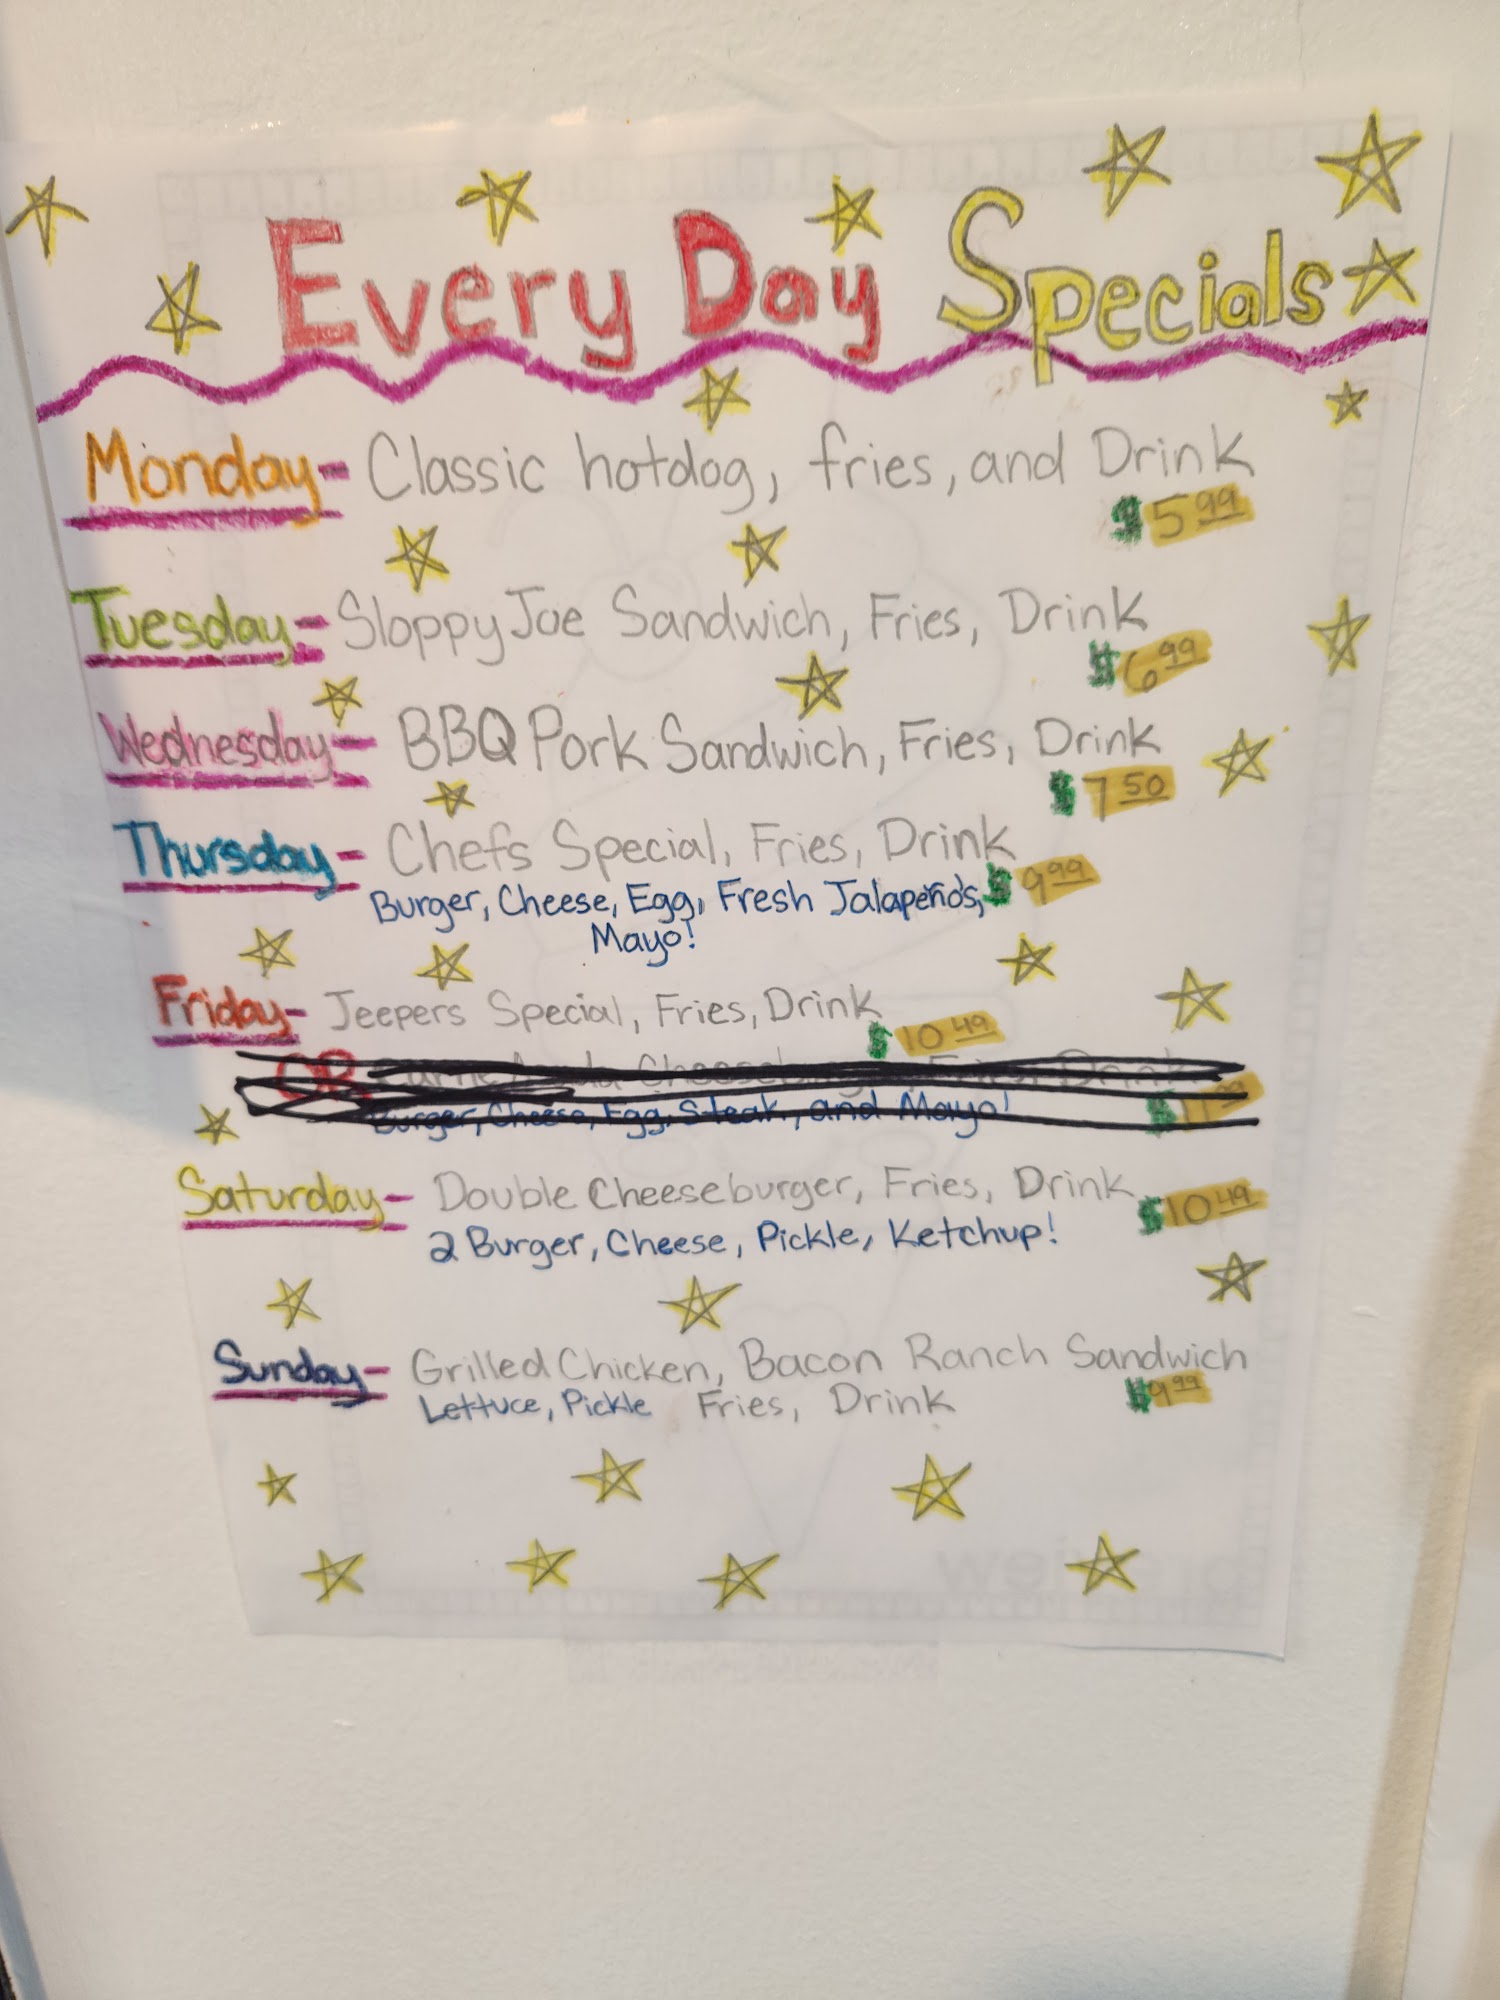 Every Day Specials
Monday- Classic hotdog, fries, and Drink
$5.99
Tuesday- Sloppy Joe Sandwich, Fries, Drink
$6.99
Wednesday- BBQ Pork Sandwich, Fries, Drink
$7.50
Thursday- Chefs Special, Fries, Drink
$9.99
Burger, Cheese, Egg, Fresh Jalapeños,
Mayo!
Friday- Jeepers Special, Fries, Drink
$10.49
OR Carne Asada Cheeseburger, Fries, Drink
Burger, Cheese, Egg, Steak, and Mayo!
Saturday- Double Cheeseburger, Fries, Drink
$10.49
2 Burger, Cheese, Pickle, Ketchup!
Sunday- Grilled Chicken, Bacon Ranch Sandwich
Lettuce, Pickle Fries, Drink
$9.99